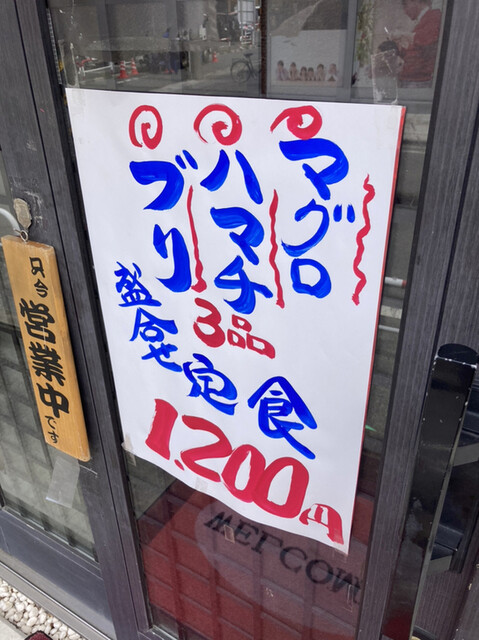 マグロ
ハマチ
ブリ
3品
盛合せ定食
1,200円
只今営業中です
WELCOM